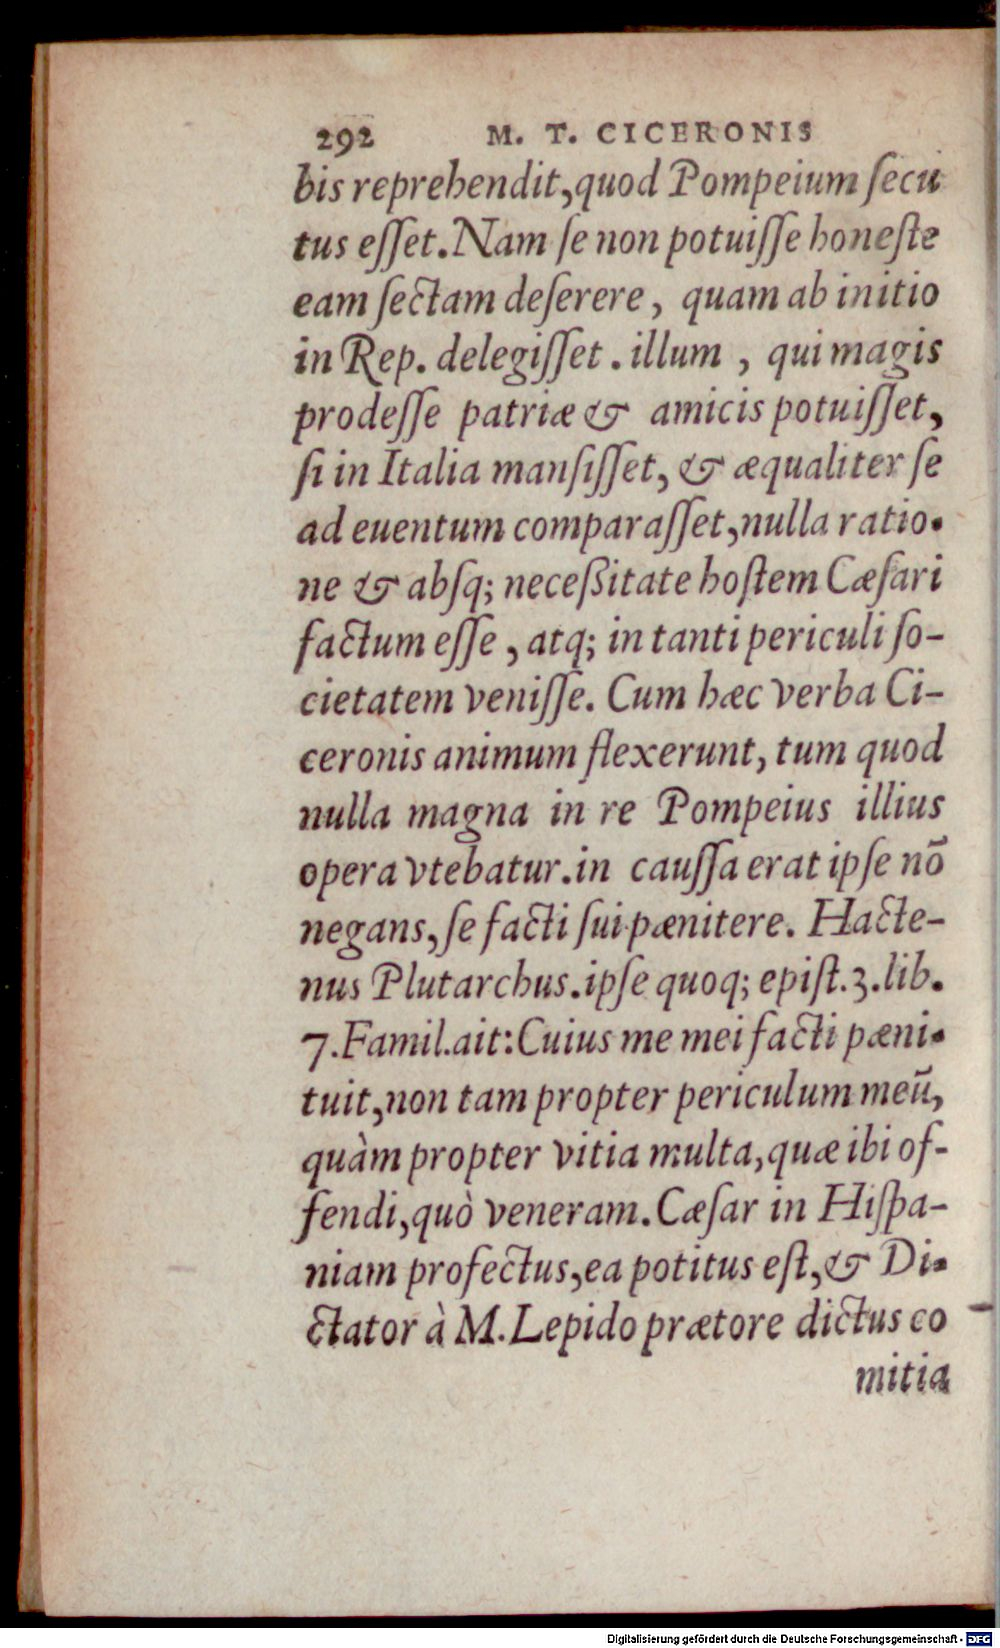 292 M. T. CICERONIS
bis reprehendit, quod Pompeium ſecu
tus eſſet. Nam ſe non potuiſſe honeſte
eam ſectam deſerere, quam ab initio
in Rep. delegiſſet. illum, qui magis
prodeſſe patriæ & amicis potuiſſet,
ſi in Italia manſiſſet, & æqualiter ſe
ad euentum comparaſſet, nulla ratio-
ne & abſq; neceßitate hoſtem Cæſari
factum eſſe, atq; in tanti periculi ſo-
cietatem veniſſe. Cum hæc verba Ci-
ceronis animum flexerunt, tum quod
nulla magna in re Pompeius illius
opera vtebatur. in cauſſa erat ipſe nō
negans, ſe facti ſui pænitere. Hacte-
nus Plutarchus. ipſe quoq; epiſt. 3. lib.
7. Famil. ait: Cuius me mei facti pæni-
tuit, non tam propter periculum meū,
quàm propter vitia multa, quæ ibi of-
fendi, quò veneram. Cæſar in Hiſpa-
niam profectus, ea potitus eſt, & Di-
ctator à M. Lepido prætore dictus co
mitia
Digitalisierung gefördert durch die Deutsche Forschungsgemeinschaft - DFG